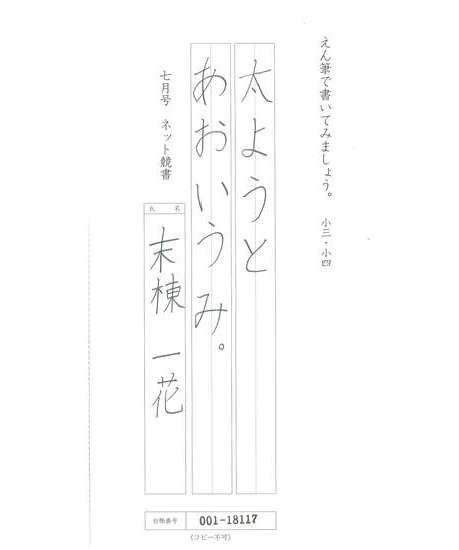 えん筆で書いてみましょう。 小三・小四
太ようと
あおいうみ。
七月号 ネット競書
氏 名
末棟 一花
台帳番号 001-18117
(コピー不可)